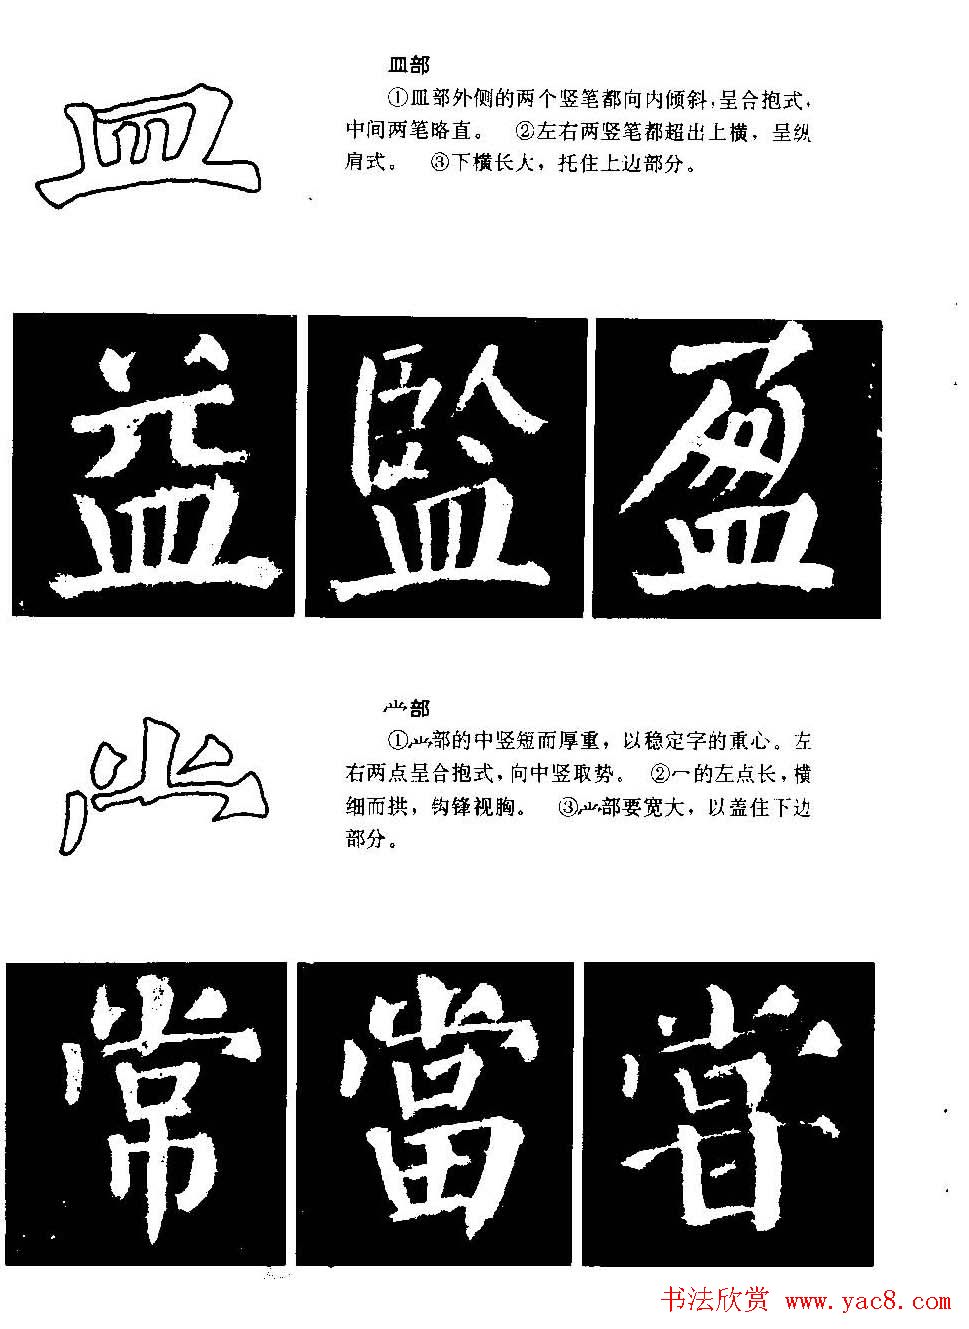 皿
皿部
①皿部外侧的两个竖笔都向内倾斜,呈合抱式,
中间两笔略直。 ②左右两竖笔都超出上横,呈纵
肩式。 ③下横长大,托住上边部分。
益 監 盈
龸
龸部
①龸部的中竖短而厚重,以稳定字的重心。左
右两点呈合抱式,向中竖取势。 ②冖的左点长,横
细而拱,钩锋视胸。 ③龸部要宽大,以盖住下边
部分。
常 當 甞
书法欣赏 www.yac8.com